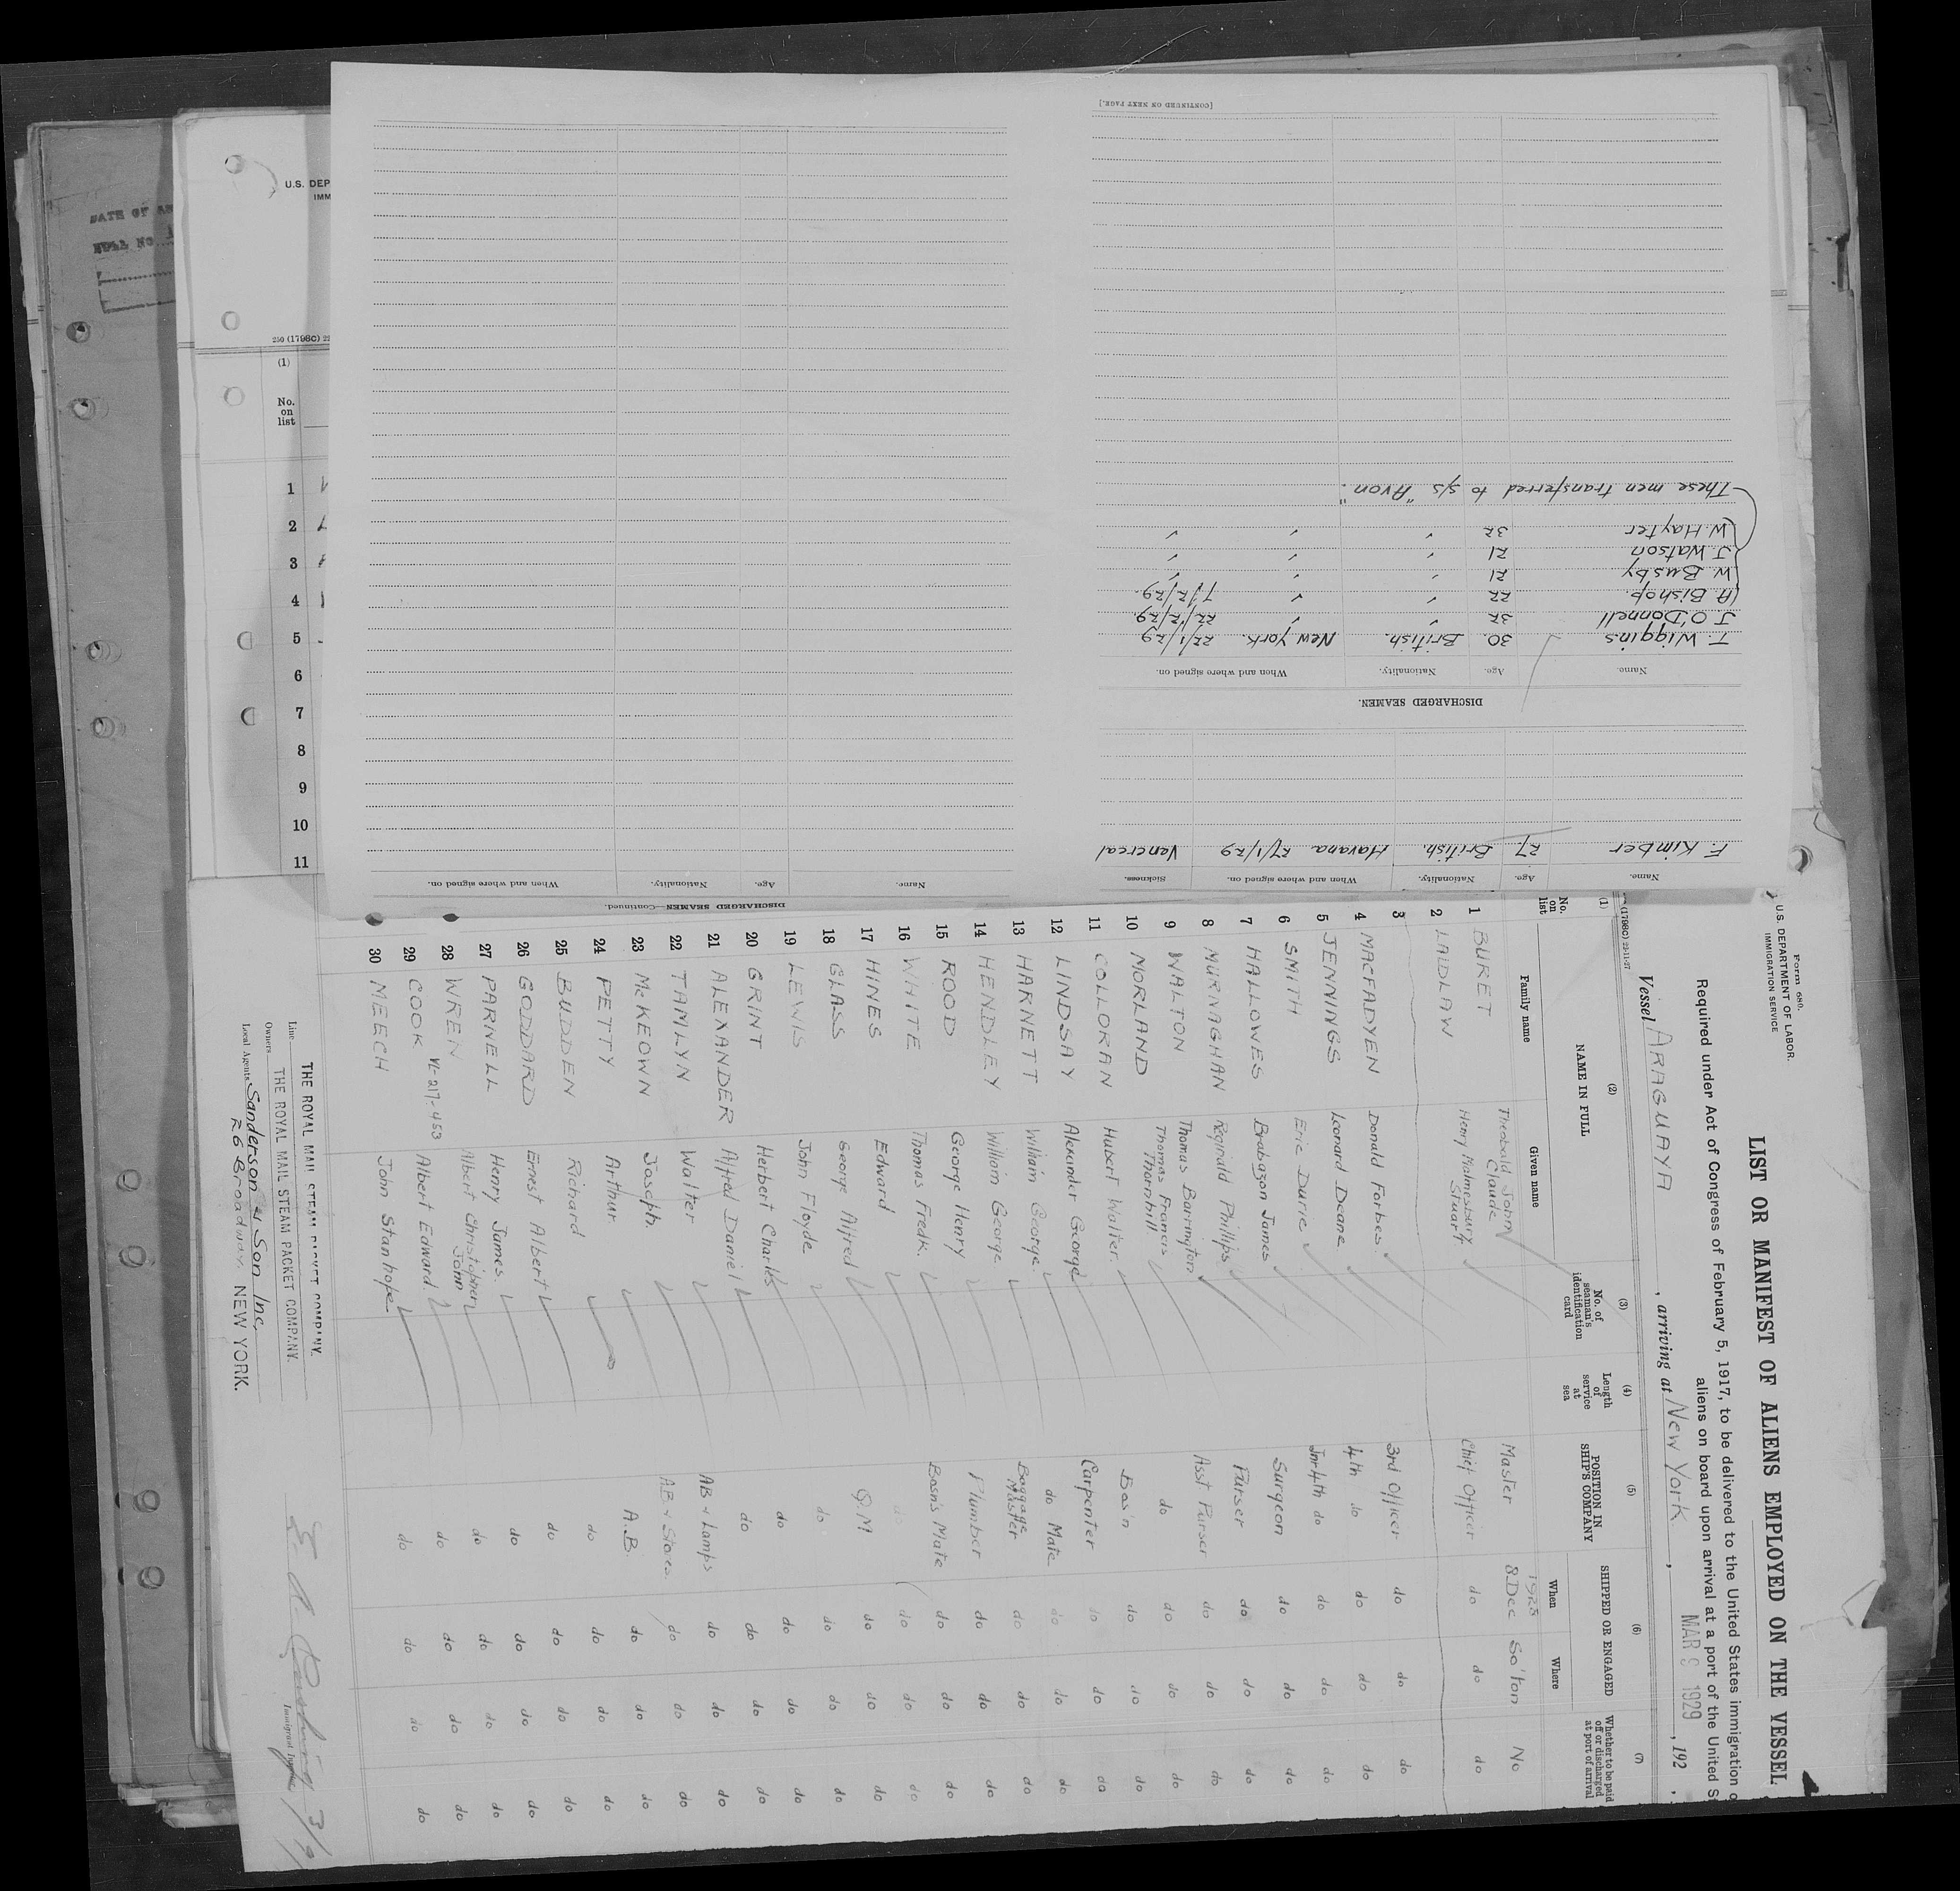 DATE OF
U.S. DEP
IMM
250 (1798C) 22
(1)
No.
on
list
1
2
3
4
5
6
7
8
9
10
11
Name. Age. Nationality. When and where signed on. Sickness.
F. Kimber 27 British. Havana 27/1/29 Venereal
DISCHARGED SEAMEN.
Name. Age. Nationality. When and where signed on.
T. Wiggins 30. British. New York. 22/1/29
J. O'Donnell 32 " " 22/2/29
A. Bishop. 22 " " 7/2/29.
W. Busby 21 " " "
J. Watson 21 " " "
W. Hayter 32 " " "
These men transferred to s/s "Avon".
[CONTINUED ON NEXT PAGE.]
DISCHARGED SEAMEN—Continued.
Name. Age. Nationality. When and where signed on.
Form 680.
U.S. DEPARTMENT OF LABOR.
IMMIGRATION SERVICE
LIST OR MANIFEST OF ALIENS EMPLOYED ON THE VESSEL
Required under Act of Congress of February 5, 1917, to be delivered to the United States immigration
aliens on board upon arrival at a port of the United St
Vessel ARAGUAYA, arriving at New York, MAR 9 1929, 192
(1798C) 22-11-27
(1) (2) (3) (4) (5) (6) (7)
No. on list
NAME IN FULL
Family name Given name
No. of seaman's identification card
Length of service at sea
POSITION IN SHIP'S COMPANY
SHIPPED OR ENGAGED
When Where
Whether to be paid off or discharged at port of arrival
1 BURET Theobald John Claude Master 1928 8 Dec So'ton No
2 LADLAW Henry Malmesbury Stuart Chief Officer do do do
3 MACFADYEN Donald Forbes 3rd Officer do do do
4 JENNINGS Leonard Deane 4th do do do do
5 SMITH Eric Durie Jnr 4th do do do do
6 HALLOWES Brabazon James Surgeon do do do
7 MURNAGHAN Reginald Phillips Purser do do do
8 WALTON Thomas Barrington Asst Purser do do do
9 MORLAND Thomas Francis Thornhill. do do do do
10 COLLORAN Hubert Walter. Bos'n do do do
11 LINDSAY Alexander George Carpenter do do do
12 HARNETT William George do Mate do do do
13 HENDLEY William George Baggage Master do do do
14 ROOD George Henry Plumber do do do
15 WHITE Thomas Fredk. Bosn's Mate do do do
16 HINES Edward do do do do
17 GLASS George Alfred Q.M do do do
18 LEWIS John Floyde do do do do
19 GRINT Herbert Charles do do do do
20 ALEXANDER Alfred Daniel do do do do
21 TAMLYN Walter AB & Lamps do do do
22 McKEOWN Joseph AB & Stores do do do
23 PETTY Arthur A.B. do do do
24 BUDDEN Richard do do do do
25 GODDARD Ernest Albert do do do do
26 PARNELL Henry James do do do do
27 WREN Albert Christopher John do do do do
28 COOK VL-217-453 Albert Edward. do do do do
29 MEECH John Stanhope do do do do
30
THE ROYAL MAIL STEAM PACKET COMPANY.
Line
Owners THE ROYAL MAIL STEAM PACKET COMPANY.
Local Agents Sanderson & Son Inc,
26 Broadway, NEW YORK.
Immigrant Inspector